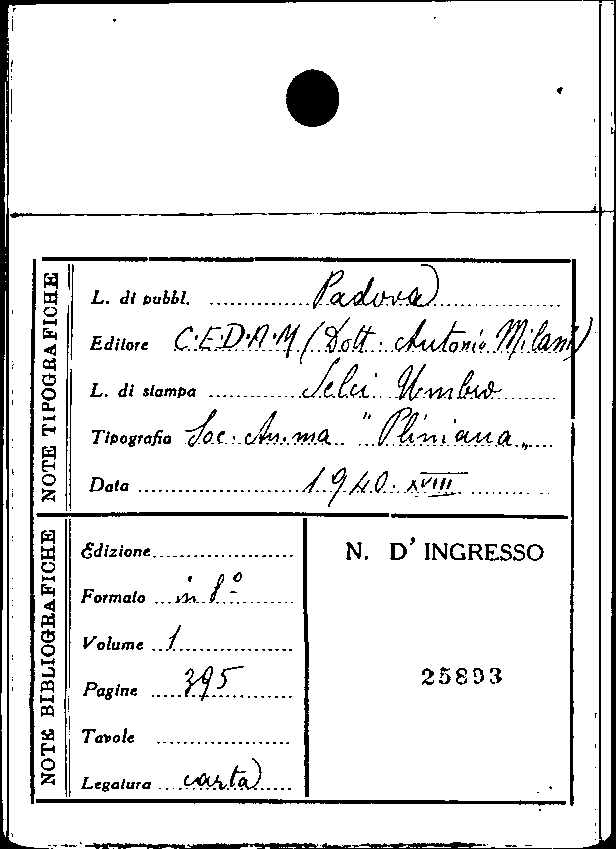 NOTE TIPOGRAFICHE
L. di pubbl. Padova
Editore C.E.D.A.M (Dott. Antonio Milani)
L. di stampa Selci Umbro
Tipografia Soc. An.ma "Pliniana"
Data 1940. XVIII
NOTE BIBLIOGRAFICHE
Edizione
Formato in 8º
Volume 1
Pagine 395
Tavole
Legatura carta
N. D' INGRESSO
25893